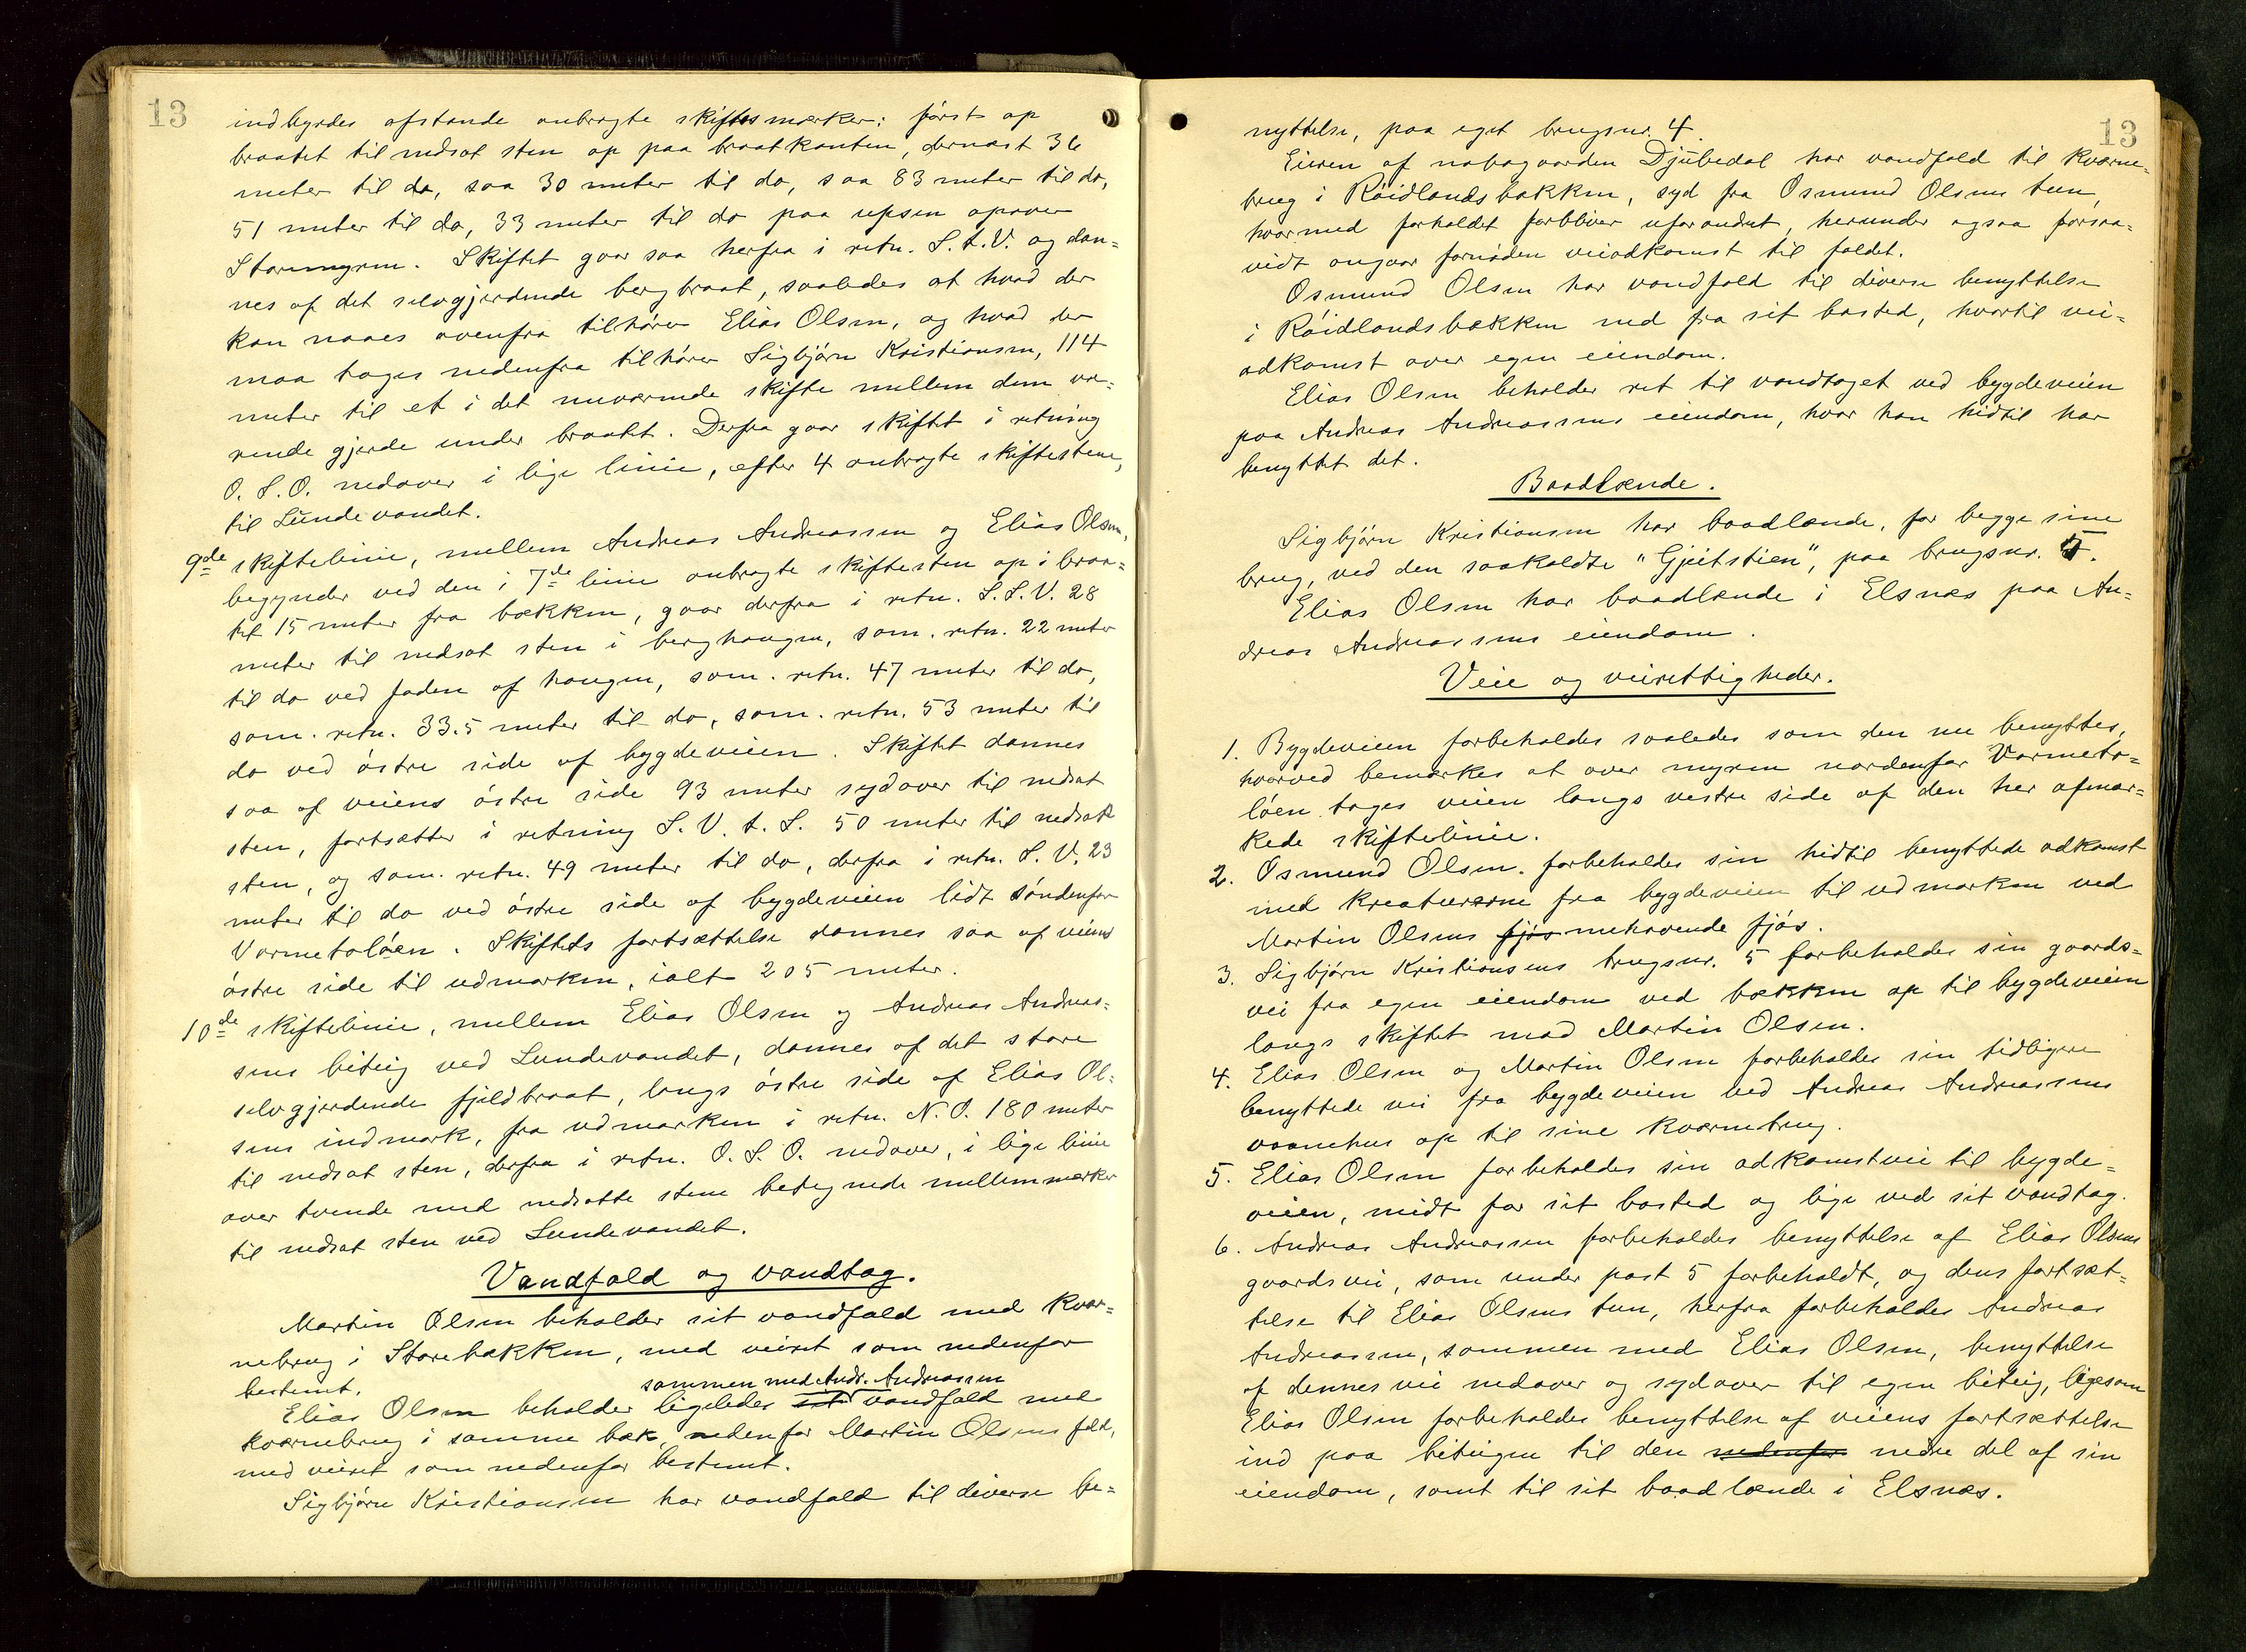 13
indbyrdes afstande anbragte skiftesmærker: først op
braatet til nedsat sten op paa braatkanten, dernæst 36
meter til do, saa 30 meter til do, saa 83 meter til do,
51 meter til do, 33 meter til do paa upsen opover
Storemyren. Skiftet gaar saa herfra i retn. S.t.V. og dan=
nes af det selvgjerdende bergbraat, saaledes at hvad der
kan naaes ovenfra tilhører Elias Olsen, og hvad der
maa tages nedenfra tilhører Sigbjørn Kristiansen, 114
meter til et i det nuværende skifte mellem dem væ=
rende gjerde under braatet. Derfra gaar skiftet i retning
O.S.O. nedover i lige linie, efter 4 anbragte skiftestene,
til Lundevandet.
9de skiftelinie, mellem Andreas Andreassen og Elias Olsen,
begynder ved den i 7de linie anbragte skiftesten op i braa=
tet 15 meter fra bækken, gaar derfra i retn. S.S.V. 28
meter til nedsat sten i berghaugen, sam. retn. 22 meter
til do ved foden af haugen, sam. retn. 47 meter til do,
sam. retn. 33.5 meter til do, sam. retn. 53 meter til
do ved østre side af bygdeveien. Skiftet dannes
saa af veiens østre side 93 meter sydover til nedsat
sten, fortsætter i retning S.V.t.S. 50 meter til nedsat
sten, og sam. retn. 49 meter til do, derfra i retn. S.V. 23
meter til do ved østre side af bygdeveien lidt søndenfor
Varmetoløen. Skiftets fortsættelse dannes saa af veiens
østre side til udmarken, ialt 205 meter.
10de skiftelinie, mellem Elias Olsen og Andreas Andreas=
sens biteig ved Lundevandet, dannes af det store
selvgjerdende fjeldbraat, langs østre side af Elias Ol=
sens indmark, fra udmarken i retn. N.O. 180 meter
til nedsat sten, derfra i retn. O.S.O. nedover, i lige linie
over tvende med nedsatte stene betegnede mellemmærker
til nedsat sten ved Lundevandet.
Vandfald og vandtag.
Martin Olsen beholder sit vandfald med kvær=
nebrug i Storebækken, med veiret som nedenfor
bestemt.
sammen med Andr. Andreassen
Elias Olsen beholder ligeledes sit vandfald med
kværnebrug i samme bæk, nedenfor Martin Olsens fald,
med veiret som nedenfor bestemt.
Sigbjørn Kristiansen har vandfald til diverse be=
13
nyttelse, paa eget brugsnr. 4.
Eieren af nabogaarden Djubedal har vandfald til kværne=
brug i Røidlandsbækken, syd fra Osmund Olsens tun,
hvormed forholdet forbliver uforandret, herunder ogsaa forsaa=
vidt angaar fornøden veiadkomst til faldet.
Osmund Olsen har vandfald til diverse benyttelse
i Røidlandsbækken ned fra sit bosted, hvortil vei=
adkomst over egen eiendom.
Elias Olsen beholder ret til vandtaget ved bygdeveien
paa Andreas Andreassens eiendom, hvor han hidtil har
benyttet det.
Baadlænde.
Sigbjørn Kristiansen har baadlænde, for begge sine
brug, ved den saakaldte "Gjeitstien", paa brugsnr. 5.
Elias Olsen har baadlænde i Elsnæs paa An=
dreas Andreassens eiendom.
Veie og veirettigheder.
1. Bygdeveien forbeholdes saaledes som den nu benyttes,
hvorved bemærkes at over myren nordenfor Varmeto=
løen tages veien langs vestre side af den her afmær=
kede skiftelinie.
2. Osmund Olsen forbeholdes sin hidtil benyttede adkomst
med kreaturerne fra bygdeveien til udmarken ved
Martin Olsens fjøs nuhavende fjøs.
3. Sigbjørn Kristiansens brugsnr. 5 forbeholdes sin gaards=
vei fra egen eiendom ved bækken op til bygdeveien
langs skiftet mod Martin Olsen.
4. Elias Olsen og Martin Olsen forbeholdes sin tidligere
benyttede vei fra bygdeveien ved Andreas Andreassens
vaanehus op til sine kværnebrug.
5. Elias Olsen forbeholdes sin adkomstvei til bygde=
veien, midt for sit bosted og lige ved sit vandtag.
6. Andreas Andreassen forbeholdes benyttelse af Elias Olsens
gaardsvei, som under post 5 forbeholdt, og dens fortsæt=
telse til Elias Olsens tun, herfra forbeholdes Andreas
Andreassen, sammen med Elias Olsen, benyttelse
af dennes vei nedover og sydover til egen biteig, ligesom
Elias Olsen forbeholdes benyttelse af veiens fortsættelse
ind paa biteigen til den nedenfor nedre del af sin
eiendom, samt til sit baadlænde i Elsnæs.